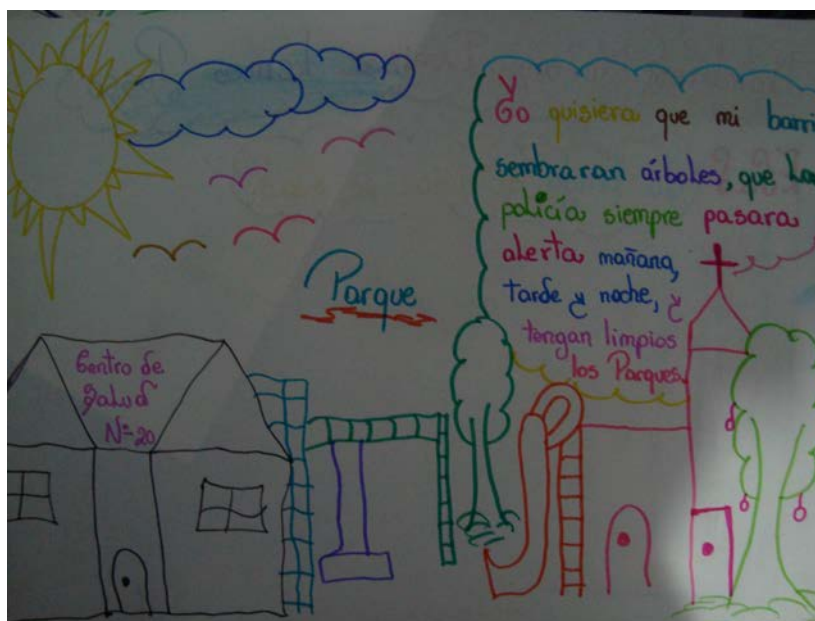 Yo quisiera que mi barri
sembraran árboles, que La
policía siempre pasara
alerta mañana,
tarde y noche, y
tengan limpios
los Parques.
Parque
Centro de
Salud
Nº-20